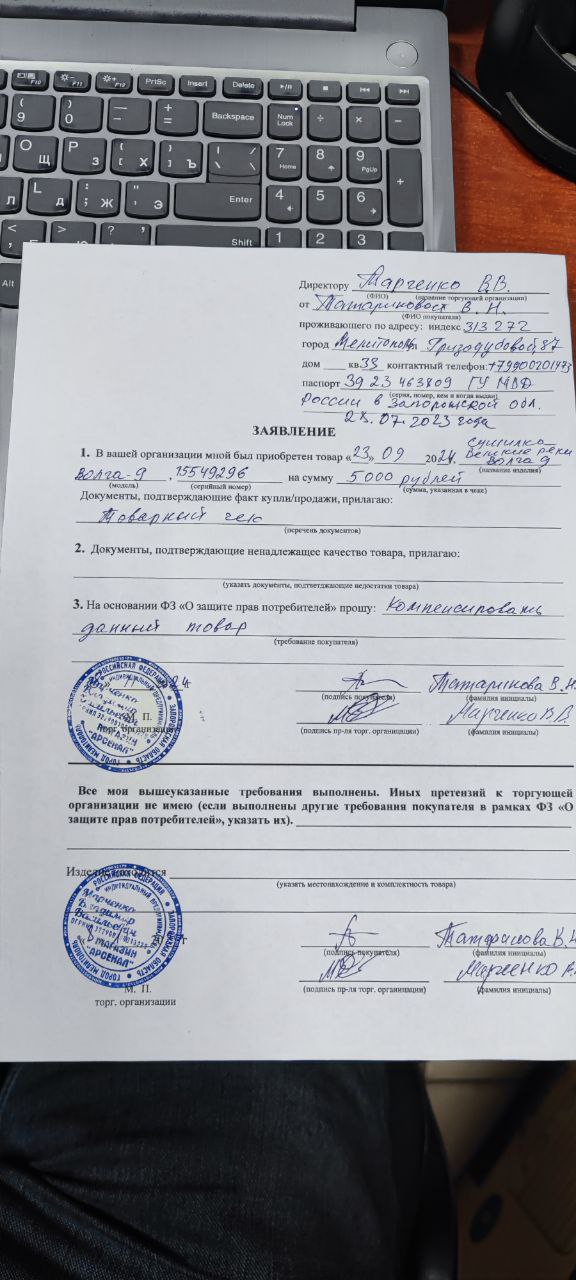 F10 F11 F12 PrtSc Insert Delete
( 9 ) 0 — - + = Backspace Num Lock ÷ × −
O Щ P З { [ Х } ] Ъ | \ 7 Home 8 9 PgUp +
Л L Д : ; Ж " ' Э Enter 4 5 6
< , > . ? / Shift 1 2 3
Alt
Директору Марченко В.В.
(ФИО) (название торгующей организации)
от В. Н.
(ФИО покупателя)
проживающего по адресу: индекс 313272
город Мелитополь Гризодубовой, 87
дом кв 33 контактный телефон: +79900201473
паспорт 39 23 463809 ГУ МВД
(серия, номер, кем и когда выдан)
России в Запорожской обл.
07.2023 года
ЗАЯВЛЕНИЕ
1. В вашей организации мной был приобретен товар «23» 09 2024, сушилка
Великие реки
Волга-9, 15549296 на сумму 5000 рублей Волга 9
(модель) (серийный номер) (сумма, указанная в чеке) (название изделия)
Документы, подтверждающие факт купли/продажи, прилагаю:
Товарный чек
(перечень документов)
2. Документы, подтверждающие ненадлежащее качество товара, прилагаю:
(указать документы, подтветджающие недостатки товара)
3. На основании ФЗ «О защите прав потребителей» прошу: компенсировать
данный товар
(требование покупателя)
Татаринова В.Н.
(подпись покупателя) (фамилия инициалы)
М. П. Марченко В.В.
торг. организации (подпись пр-ля торг. организации) (фамилия инициалы)
РОССИЙСКАЯ ФЕДЕРАЦИЯ * ЗАПОРОЖСКАЯ ОБЛАСТЬ * ГОРОД МЕЛИТОПОЛЬ
ИНДИВИДУАЛЬНЫЙ ПРЕДПРИНИМАТЕЛЬ
Марченко
Владимир
Васильевич
МАГАЗИН
"АРСЕНАЛ"
Все мои вышеуказанные требования выполнены. Иных претензий к торгующей
организации не имею (если выполнены другие требования покупателя в рамках ФЗ «О
защите прав потребителей», указать их).
Изделие находится
(указать местонахождение и комплектность товара)
РОССИЙСКАЯ ФЕДЕРАЦИЯ * ЗАПОРОЖСКАЯ ОБЛАСТЬ * ГОРОД МЕЛИТОПОЛЬ
ИНДИВИДУАЛЬНЫЙ ПРЕДПРИНИМАТЕЛЬ
Марченко
Владимир
Васильевич
МАГАЗИН
"АРСЕНАЛ"
Татаринова В.Н.
(подпись покупателя) (фамилия инициалы)
Марченко
М. П. (подпись пр-ля торг. организации) (фамилия инициалы)
торг. организации